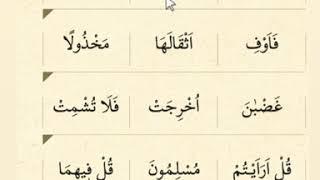 فَاَوْفِ اَثْقَالَهَا مَخْذُولًا
غَضْبٰنَ اُخْرِجَتْ فَلَا تُشْمِتْ
قُلْ اَرَاَيْتُمْ مُسْلِمُونَ قُلْ فِيهِمَا